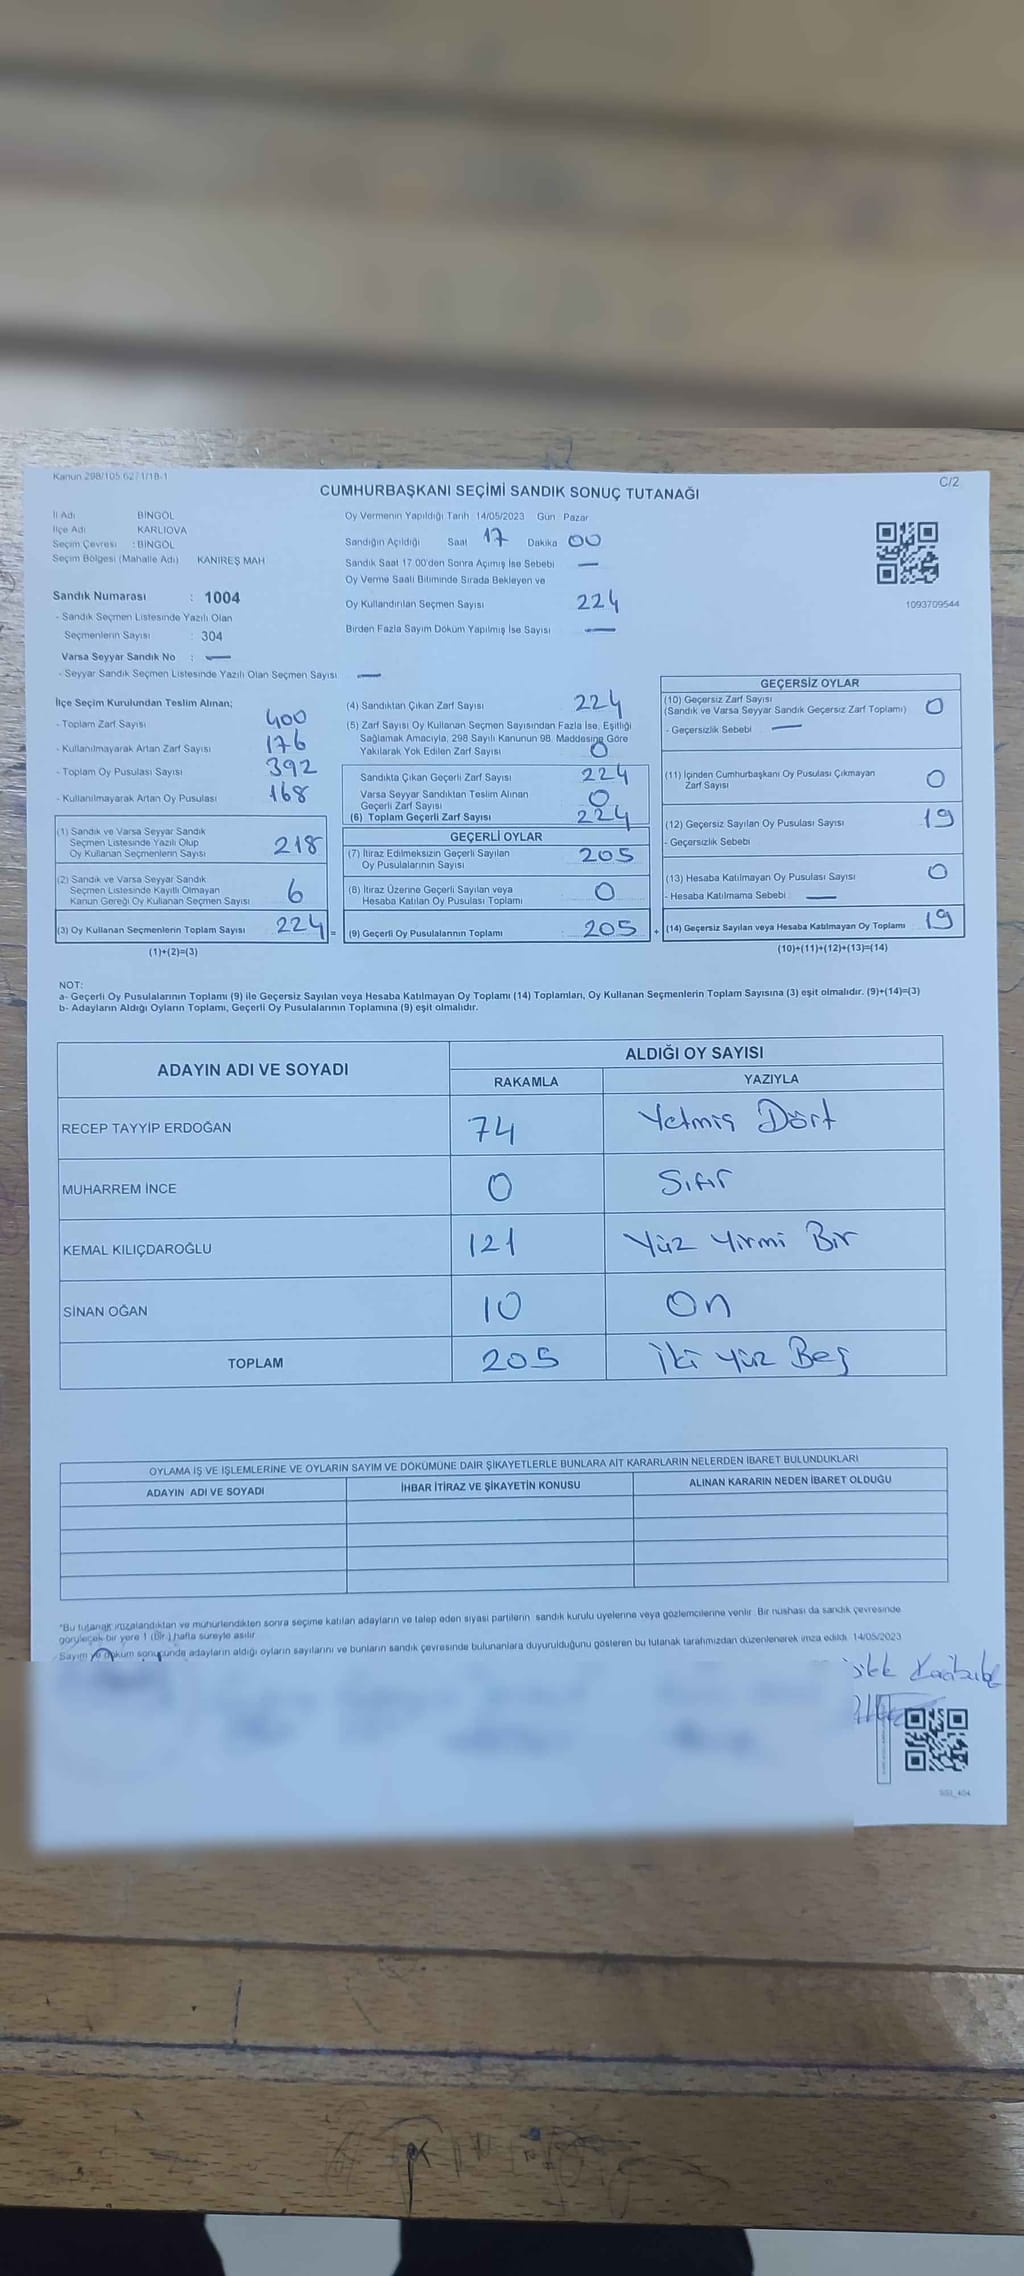 Kanun 298/105,62/1/18-1
C/2
CUMHURBAŞKANI SEÇİMİ SANDIK SONUÇ TUTANAĞI
İl Adı BİNGÖL
İlçe Adı KARLIOVA
Seçim Çevresi : BİNGÖL
Seçim Bölgesi (Mahalle Adı) KANİREŞ MAH
Sandık Numarası : 1004
- Sandık Seçmen Listesinde Yazılı Olan
Seçmenlerin Sayısı : 304
Varsa Seyyar Sandık No : —
- Seyyar Sandık Seçmen Listesinde Yazılı Olan Seçmen Sayısı —
Oy Vermenin Yapıldığı Tarih 14/05/2023 Gün Pazar
Sandığın Açıldığı Saat 17 Dakika 00
Sandık Saat 17.00'den Sonra Açımış İse Sebebi —
Oy Verme Saati Bitiminde Sırada Bekleyen ve
Oy Kullandırılan Seçmen Sayısı 224
Birden Fazla Sayım Döküm Yapılmış İse Sayısı —
1093709544
İlçe Seçim Kurulundan Teslim Alınan;
- Toplam Zarf Sayısı 400
- Kullanılmayarak Artan Zarf Sayısı 176
- Toplam Oy Pusulası Sayısı 392
- Kullanılmayarak Artan Oy Pusulası 168
(1) Sandık ve Varsa Seyyar Sandık
Seçmen Listesinde Yazılı Olup
Oy Kullanan Seçmenlerin Sayısı 218
(2) Sandık ve Varsa Seyyar Sandık
Seçmen Listesinde Kayıtlı Olmayan
Kanun Gereği Oy Kullanan Seçmen Sayısı 6
(3) Oy Kullanan Seçmenlerin Toplam Sayısı 224 =
(1)+(2)=(3)
(4) Sandıktan Çıkan Zarf Sayısı 224
(5) Zarf Sayısı Oy Kullanan Seçmen Sayısından Fazla İse, Eşitliği
Sağlamak Amacıyla, 298 Sayılı Kanunun 98. Maddesine Göre
Yakılarak Yok Edilen Zarf Sayısı 0
Sandıkta Çıkan Geçerli Zarf Sayısı 224
Varsa Seyyar Sandıktan Teslim Alınan
Geçerli Zarf Sayısı 0
(6) Toplam Geçerli Zarf Sayısı 224
GEÇERLİ OYLAR
(7) İtiraz Edilmeksizin Geçerli Sayılan
Oy Pusulalarının Sayısı 205
(8) İtiraz Üzerine Geçerli Sayılan veya
Hesaba Katılan Oy Pusulası Toplamı 0
(9) Geçerli Oy Pusulalarının Toplamı : 205 +
GEÇERSİZ OYLAR
(10) Geçersiz Zarf Sayısı
(Sandık ve Varsa Seyyar Sandık Geçersiz Zarf Toplamı) 0
- Geçersizlik Sebebi —
(11) İçinden Cumhurbaşkanı Oy Pusulası Çıkmayan
Zarf Sayısı 0
(12) Geçersiz Sayılan Oy Pusulası Sayısı 19
- Geçersizlik Sebebi
(13) Hesaba Katılmayan Oy Pusulası Sayısı 0
- Hesaba Katılmama Sebebi —
(14) Geçersiz Sayılan veya Hesaba Katılmayan Oy Toplamı 19
(10)+(11)+(12)+(13)=(14)
NOT:
a- Geçerli Oy Pusulalarının Toplamı (9) ile Geçersiz Sayılan veya Hesaba Katılmayan Oy Toplamı (14) Toplamları, Oy Kullanan Seçmenlerin Toplam Sayısına (3) eşit olmalıdır. (9)+(14)=(3)
b- Adayların Aldığı Oyların Toplamı, Geçerli Oy Pusulalarının Toplamına (9) eşit olmalıdır.
ADAYIN ADI VE SOYADI
ALDIĞI OY SAYISI
RAKAMLA YAZIYLA
RECEP TAYYİP ERDOĞAN 74 Yetmiş Dört
MUHARREM İNCE 0 Sıfır
KEMAL KILIÇDAROĞLU 121 Yüz Yirmi Bir
SİNAN OĞAN 10 On
TOPLAM 205 İki Yüz Beş
OYLAMA İŞ VE İŞLEMLERİNE VE OYLARIN SAYIM VE DÖKÜMÜNE DAİR ŞİKAYETLERLE BUNLARA AİT KARARLARIN NELERDEN İBARET BULUNDUKLARI
ADAYIN ADI VE SOYADI İHBAR İTİRAZ VE ŞİKAYETİN KONUSU ALINAN KARARIN NEDEN İBARET OLDUĞU
*Bu tutanak imzalandıktan ve mühürlendikten sonra seçime katılan adayların ve talep eden siyasi partilerin sandık kurulu üyelerine veya gözlemcilerine verilir. Bir nüshası da sandık çevresinde
görülecek bir yere 1 (Bir) hafta süreyle asılır.
Sayım ve döküm sonucunda adayların aldığı oyların sayılarını ve bunların sandık çevresinde bulunanlara duyurulduğunu gösteren bu tutanak tarafımızdan düzenlenerek imza edildi. 14/05/2023